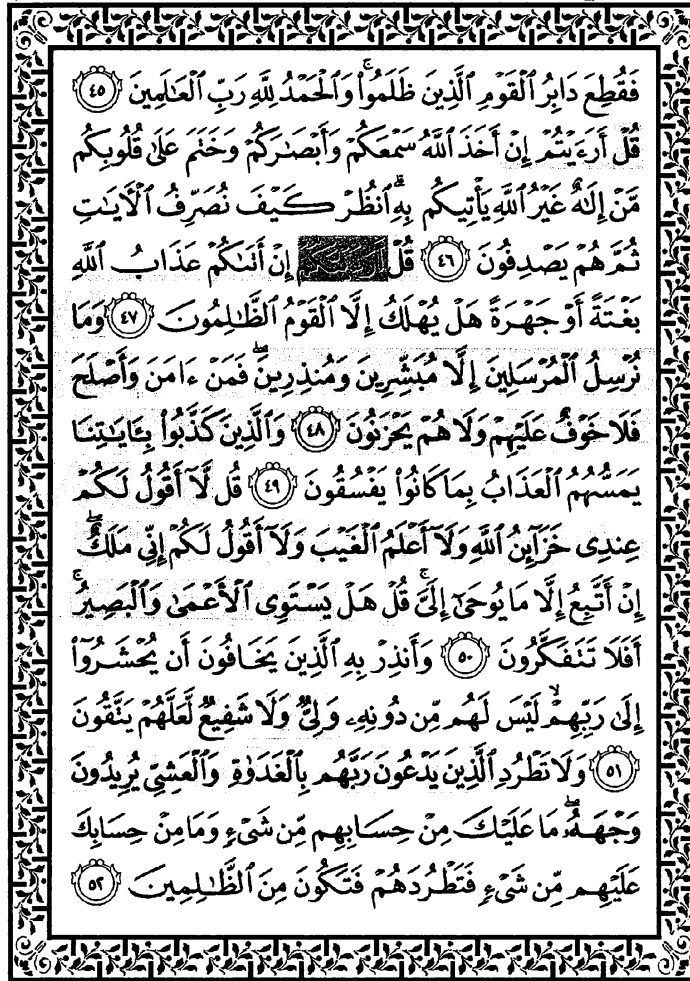 فَقُطِعَ دَابِرُ ٱلْقَوْمِ ٱلَّذِينَ ظَلَمُوا۟ ۚ وَٱلْحَمْدُ لِلَّهِ رَبِّ ٱلْعَٰلَمِينَ ٤٥
قُلْ أَرَءَيْتُمْ إِنْ أَخَذَ ٱللَّهُ سَمْعَكُمْ وَأَبْصَٰرَكُمْ وَخَتَمَ عَلَىٰ قُلُوبِكُم
مَّنْ إِلَٰهٌ غَيْرُ ٱللَّهِ يَأْتِيكُم بِهِ ۗ ٱنظُرْ كَيْفَ نُصَرِّفُ ٱلْءَايَٰتِ
ثُمَّ هُمْ يَصْدِفُونَ ٤٦ قُلْ إِنْ أَتَىٰكُمْ عَذَابُ ٱللَّهِ
بَغْتَةً أَوْ جَهْرَةً هَلْ يُهْلَكُ إِلَّا ٱلْقَوْمُ ٱلظَّٰلِمُونَ ٤٧ وَمَا
نُرْسِلُ ٱلْمُرْسَلِينَ إِلَّا مُبَشِّرِينَ وَمُنذِرِينَ ۖ فَمَنْ ءَامَنَ وَأَصْلَحَ
فَلَا خَوْفٌ عَلَيْهِمْ وَلَا هُمْ يَحْزَنُونَ ٤٨ وَٱلَّذِينَ كَذَّبُوا۟ بِـَٔايَٰتِنَا
يَمَسُّهُمُ ٱلْعَذَابُ بِمَا كَانُوا۟ يَفْسُقُونَ ٤٩ قُل لَّآ أَقُولُ لَكُمْ
عِندِى خَزَآئِنُ ٱللَّهِ وَلَآ أَعْلَمُ ٱلْغَيْبَ وَلَآ أَقُولُ لَكُمْ إِنِّى مَلَكٌ ۖ
إِنْ أَتَّبِعُ إِلَّا مَا يُوحَىٰٓ إِلَىَّ ۚ قُلْ هَلْ يَسْتَوِى ٱلْأَعْمَىٰ وَٱلْبَصِيرُ ۚ
أَفَلَا تَتَفَكَّرُونَ ٥٠ وَأَنذِرْ بِهِ ٱلَّذِينَ يَخَافُونَ أَن يُحْشَرُوٓا۟
إِلَىٰ رَبِّهِمْ ۙ لَيْسَ لَهُم مِّن دُونِهِۦ وَلِىٌّ وَلَا شَفِيعٌ لَّعَلَّهُمْ يَتَّقُونَ
٥١ وَلَا تَطْرُدِ ٱلَّذِينَ يَدْعُونَ رَبَّهُم بِٱلْغَدَوٰةِ وَٱلْعَشِىِّ يُرِيدُونَ
وَجْهَهُۥ ۖ مَا عَلَيْكَ مِنْ حِسَابِهِم مِّن شَىْءٍ وَمَا مِنْ حِسَابِكَ
عَلَيْهِم مِّن شَىْءٍ فَتَطْرُدَهُمْ فَتَكُونَ مِنَ ٱلظَّٰلِمِينَ ٥٢